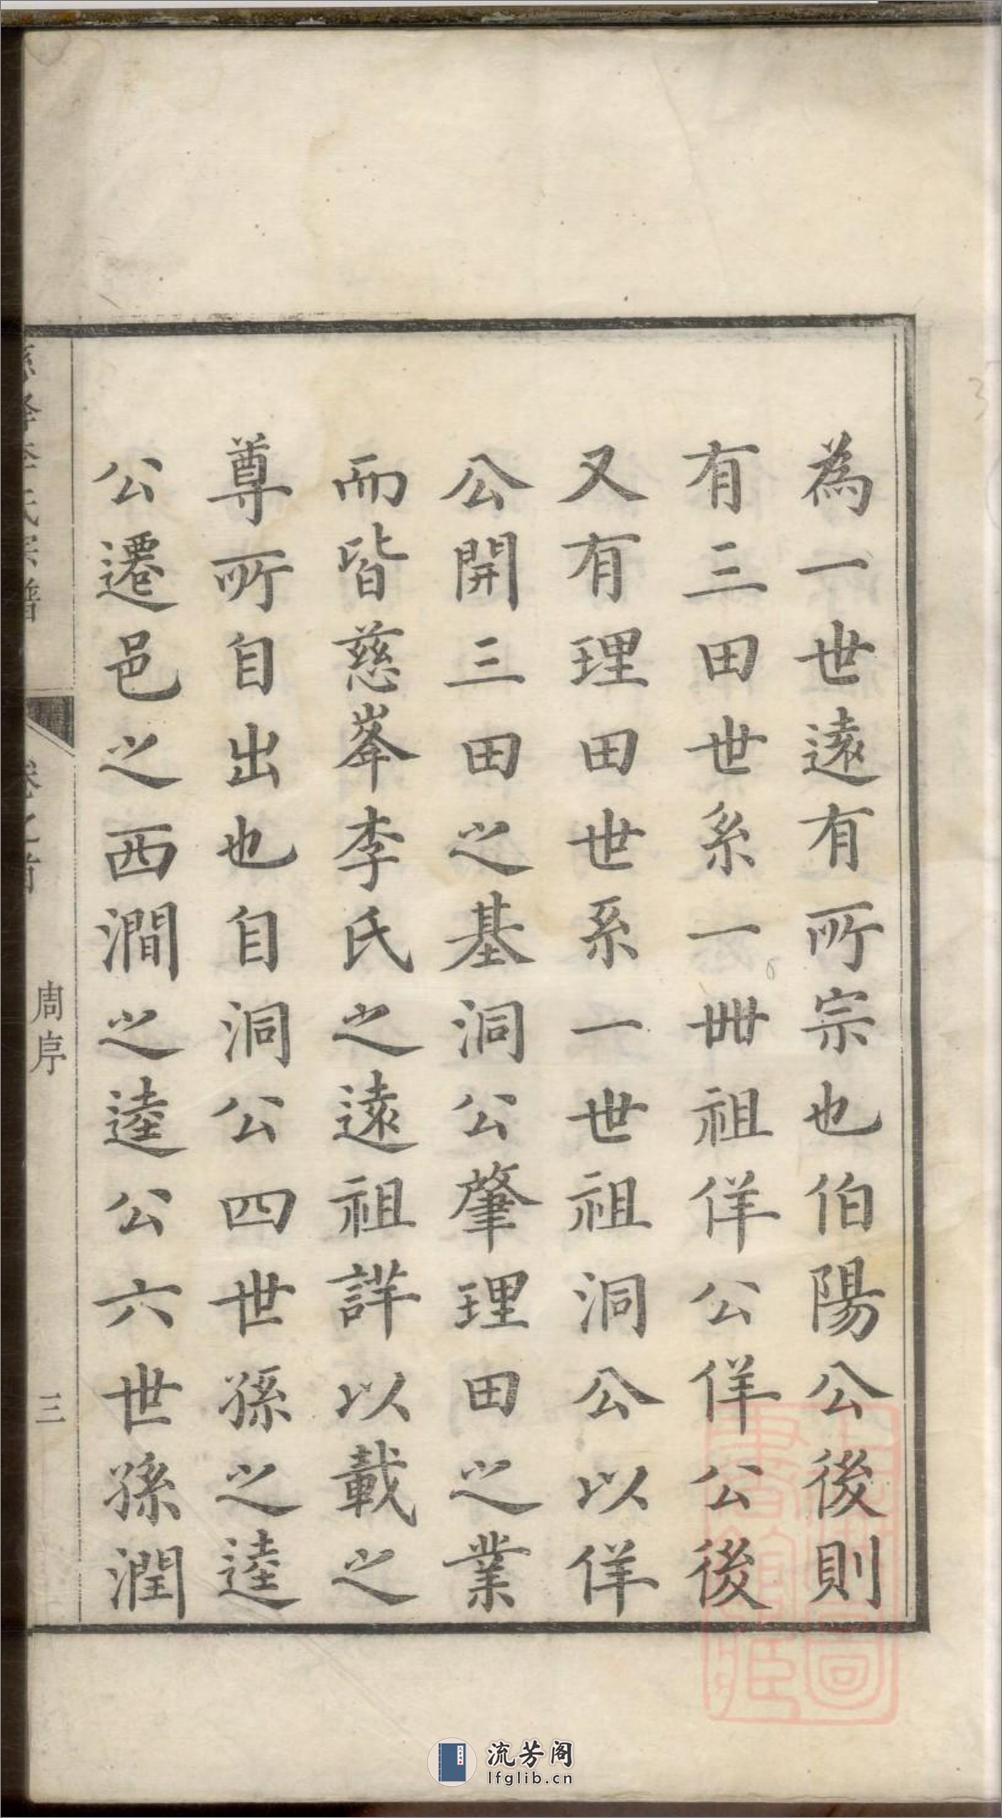 為一世遠有所宗也伯陽公後則
有三田世系一丗祖佯公佯公後
又有理田世系一世祖洞公以佯
公開三田之基洞公肇理田之業
而皆慈峯李氏之遠祖詳以載之
尊所自出也自洞公四世孫之逵
公遷邑之西澗之逵公六世孫潤
慈峯李氏宗譜
卷之首
周序
三
流芳阁
lfglib.cn